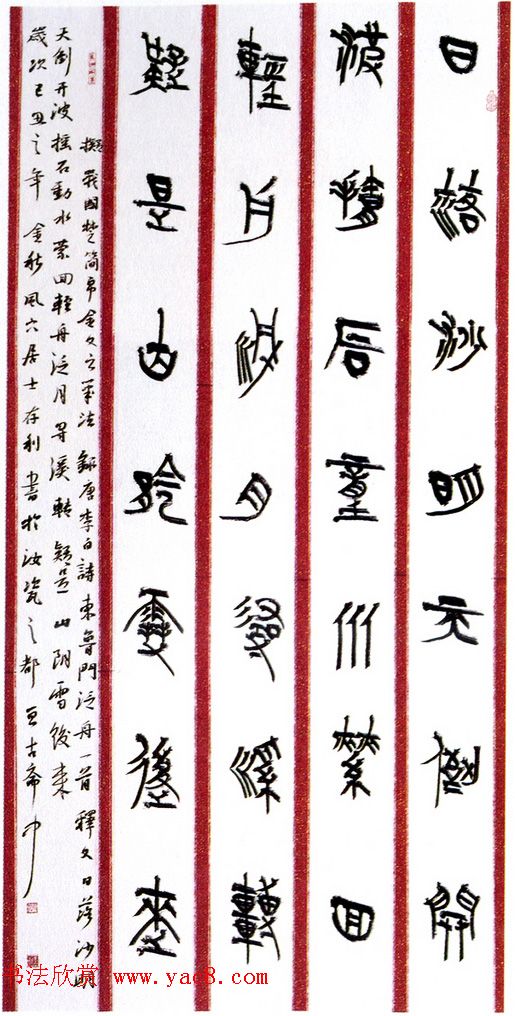 日落沙明天倒開
波搖石動水縈回
輕舟泛月尋溪轉
疑是山陰雪後來
擬戰國楚简帛金文之筆法錄唐李白詩東魯門泛舟一首 釋文日落沙明
天倒开波摇石動水萦回轻舟泛月寻溪转疑是山阴雪後来
歲次己丑之年 金秋風穴居士存利書於汝瓷之都亘古斋中
书法欣赏 www.yac8.com